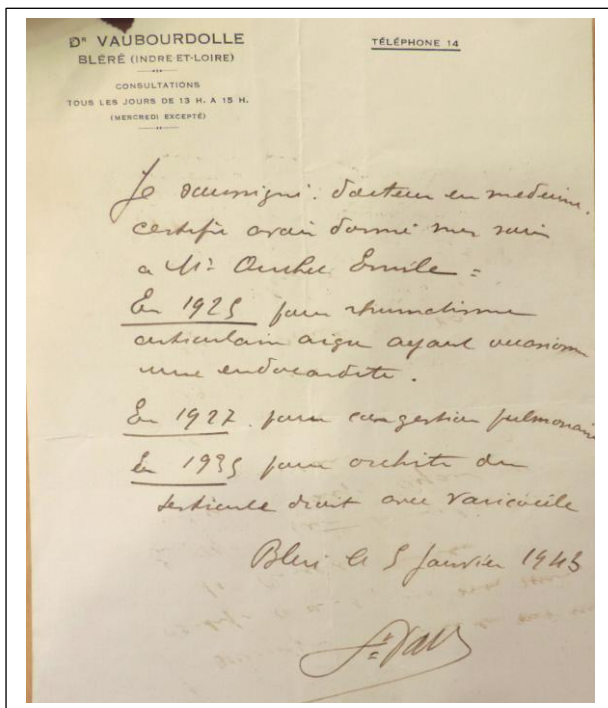 Dʳ VAUBOURDOLLE
BLÉRÉ (INDRE-ET-LOIRE)
CONSULTATIONS
TOUS LES JOURS DE 13 H. A 15 H.
(MERCREDI EXCEPTÉ)
TÉLÉPHONE 14
Je soussigné. docteur en medecine.
certifie avoir donné mes soins
a Mʳ Emile =
En 1925 pour rhumatisme
articulaire aigu ayant occasionné
une endocardite.
En 1927. pour congestion pulmonaire
En 1935 pour orchite du
testicule droit avec varicocèle
Bléré le 5 Janvier 1943